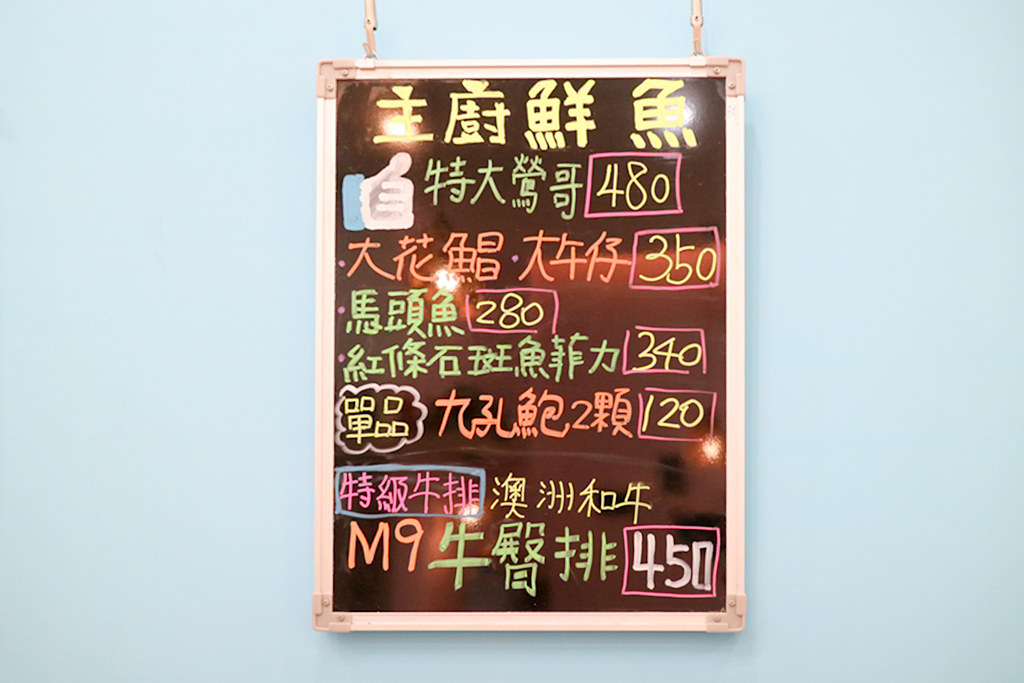 主廚鮮魚
特大鶯哥 480
·大花鯧·大午仔 350
·馬頭魚 280
·紅條石斑魚菲力 340
單品 九孔鮑2顆 120
特級牛排 澳洲和牛
M9牛臀排 450